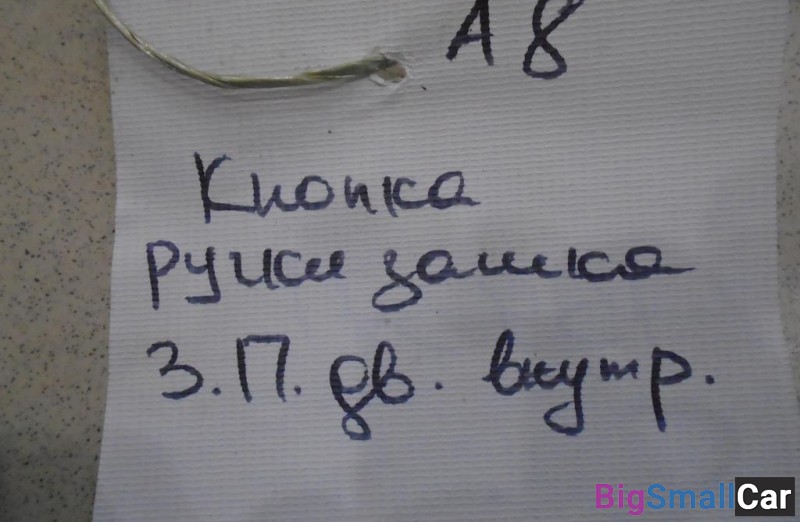 А8
Кнопка
ручки замка
З.П. дв. внутр.
BigSmallCar